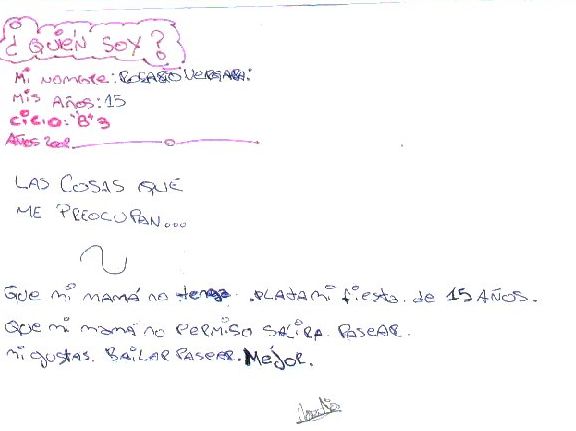 ¿QUiÉN SOY?
Mi NOMBRE: ROSARiO VERGARA:
Mis AÑOS: 15
CiCLO: "B" 3
AÑOS 2002
LAS COSAS QUE
ME PREOCUPAN...
QUE mi MAMÁ no tenga PLATA mi fiesta. de 15 AÑOS.
QUE mi mamá no PERMiSO SALiRA. PASEAR.
mi gustas. BAiLAR PASEAR. MEJOR.